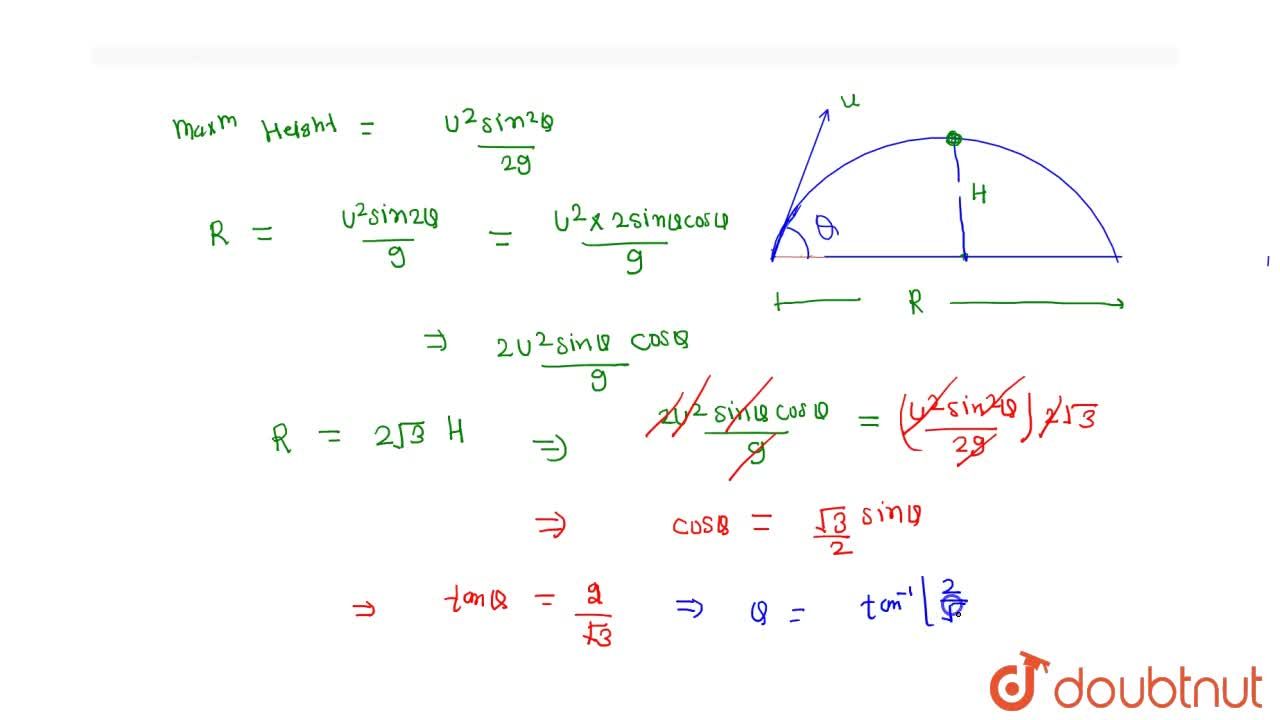 maxm Height = u²sin²θ/2g
R = u²sin2θ/g = u²×2sinθcosθ/g
⇒ 2u²sinθ cosθ/g
R = 2√3 H ⇒ 2u²sinθcosθ/g = (u²sin²θ/2g) 2√3
⇒ cosθ = √3/2 sinθ
⇒ tanθ = 2/√3 ⇒ θ = tan⁻¹(2/√
u
θ
H
R
doubtnut